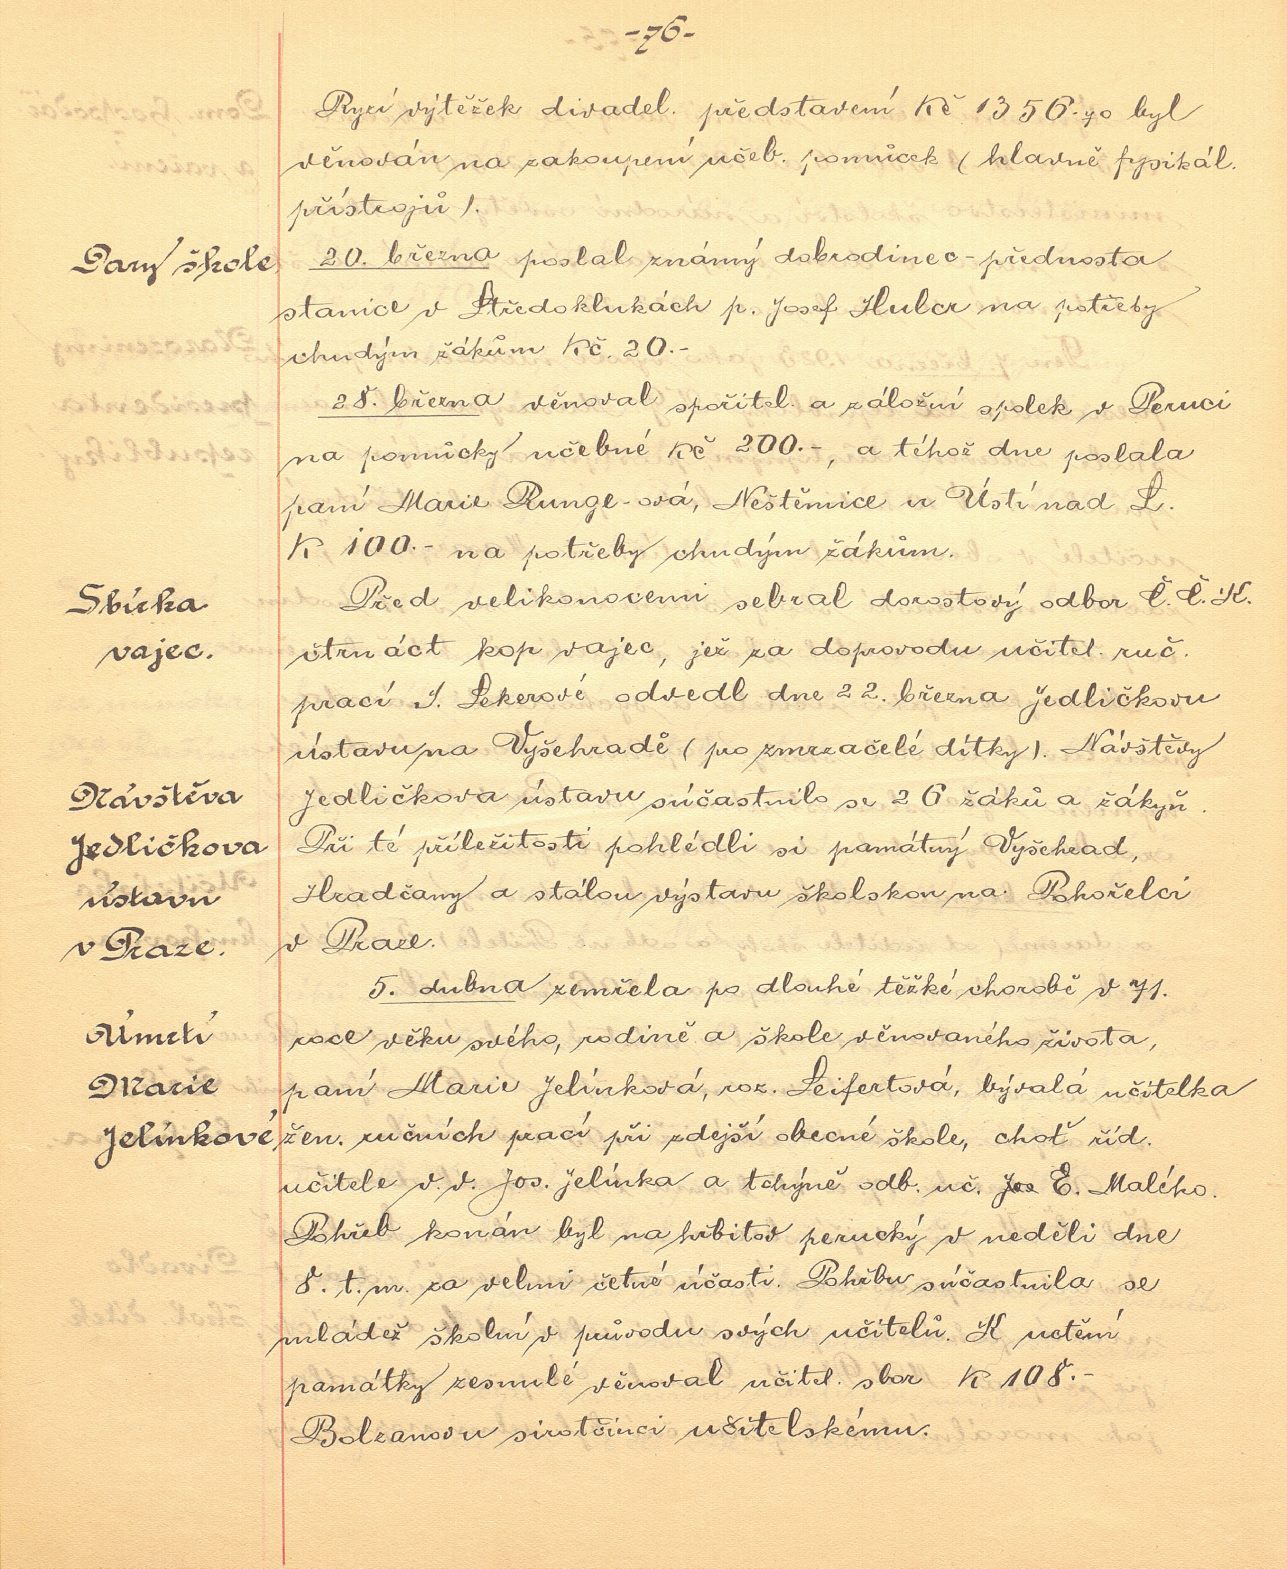 -76-
Ryzí výtěžek divadel. představení Kč 1356.70 byl
věnován na zakoupení učeb. pomůcek (hlavně fysikál.
přístrojů).
Dary škole
20. března poslal známý dobrodinec - přednosta
stanice v Středoklukách p. Josef Hulcr na potřeby
chudým žákům Kč. 20.-
28. března věnoval spořitel. a záložní spolek v Peruci
na pomůcky učebné Kč 200.-, a téhož dne poslala
paní Marie Runge-ová, Neštěmice u Ústí nad L.
K 100.- na potřeby chudým žákům.
Sbírka
vajec.
Před velikonocemi sebral dorostový odbor Č.Č.K.
čtrnáct kop vajec, jež za doprovodu učitel. ruč.
prací J. Sekerové odvedl dne 22. března Jedličkovu
ústavu na Vyšehradě (pro zmrzačelé dítky). Návštěvy
Návštěva
Jedličkova
ústavu
v Praze.
Jedličkova ústavu súčastnilo se 26 žáků a žákyň.
Při té příležitosti pohlédli si památný Vyšehrad,
Hradčany a stálou výstavu školskou na Pohořelci
v Praze.
5. dubna zemřela po dlouhé těžké chorobě v 71.
Úmrtí
Marie
Jelínkové
roce věku svého, rodině a škole věnovaného života,
paní Marie Jelínková, roz. Seifertová, bývalá učitelka
žen. ručních prací při zdejší obecné škole, choť říd.
učitele v. v. Jos. Jelínka a tchýně odb. uč. Jos E. Malého.
Pohřeb konán byl na hřbitov perucký v neděli dne
8. t.m. za velmi četné účasti. Pohřbu súčastnila se
mládež školní v průvodu svých učitelů. K uctění
památky zesnulé věnoval učitel. sbor K 108.-
Bolzanovu sirotčinci učitelskému.